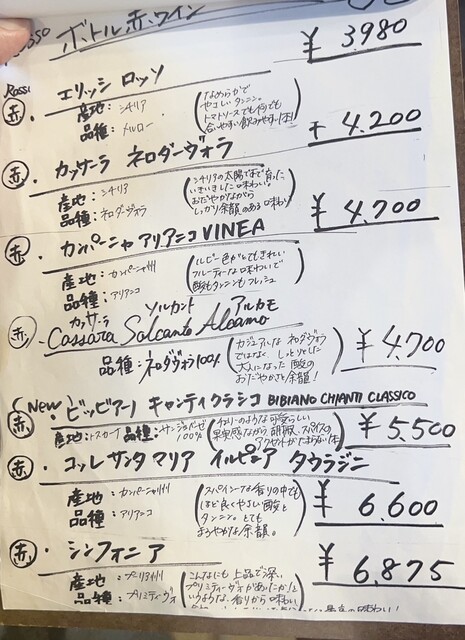 Rosso ボトル赤ワイン
¥ 3,980
Rosso
赤・エリッシ ロッソ
産地：シチリア
品種：メルロー
なめらかで
やさしいタンニン。
トマトソースでも何でも
合いやすい飲みやすい
¥ 4,200
赤・カッサーラ ネロダーヴォラ
産地：シチリア
品種：ネロダーヴォラ
シチリアの太陽で
いきいきした味わい。
おだやかながら
しっかり余韻のある味わい
¥ 4,700
赤・カンパーニャ アリアニコ VINEA
産地：カンパーニャ州
品種：アリアニコ
ルビー色がとてもきれい
フルーティーな味わいで
酸もタンニンもフレッシュ
カッサーラ ソルカント アルカモ
赤・Cassara Solcanto Alcamo
¥ 4,700
品種：ネロダヴォラ100%
カジュアルなネロダヴォラ
ではなく、しっとりとした
大人になった酸の
おだやかさと余韻！
New
赤・ビッビアーノ キャンティクラシコ BIBIANO CHIANTI CLASSICO
産地：トスカーナ 品種：サンジョベーゼ 100%
チェリーのような可愛らしい
果実感ながら、胡椒、スパイスの
アクセントがたまらない
¥ 5,500
赤・コッレサンタマリア イルピニア タウラジーニ
産地：カンパーニャ州
品種：アリアニコ
スパイシーな香りの中でも
ほど良くやさしい酸と
タンニン。とても
まろやかな余韻。
¥ 6,600
赤・シンフォニア
¥ 6,875
産地：プーリア州
品種：プリミティーヴォ
こんなにも上品で深い
プリミティーヴォがあったか！と
いうような、香りから味わい